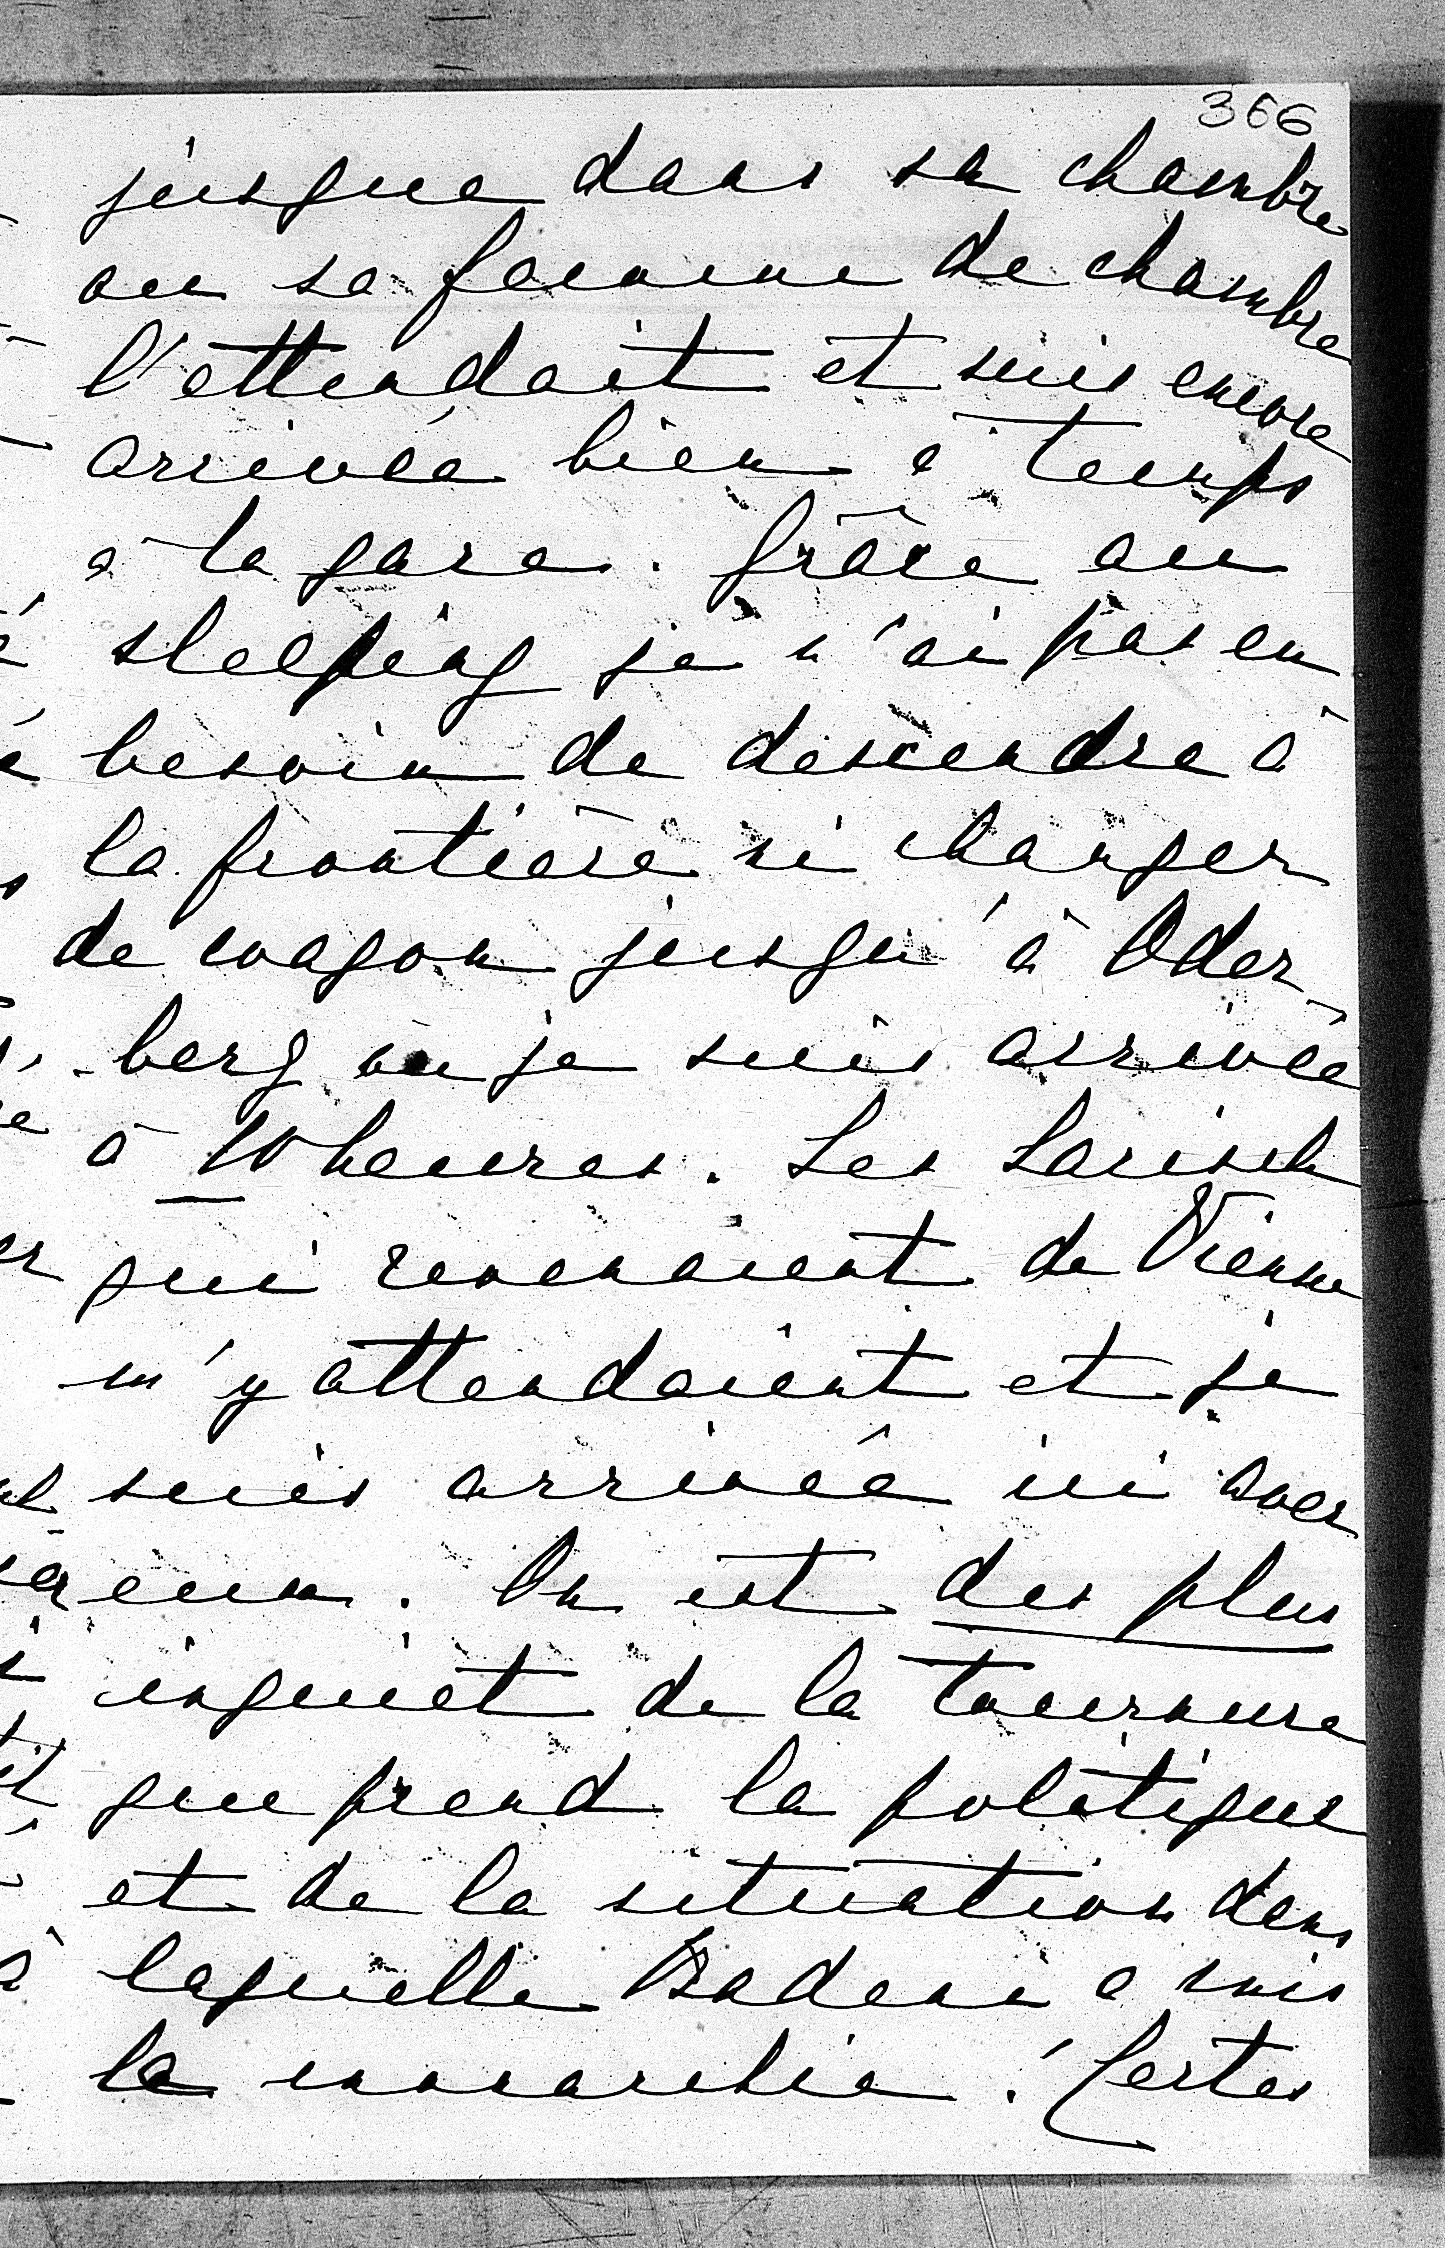 366
jusque dans sa chambre
ou sa femme de chambre
l'attendait et suis encore
arrivée bien à temps
à la gare. Grâce au
sleeping je n'ai pas eu
besoin de descendre à
la frontière ni changer
de wagon jusqu'à Oder-
-berg ou je suis arrivée
à 10 heures. Les Larisch
qui revenaient de Vienne
m'y attendaient et je
suis arrivée ici avec
eux. On est des plus
inquiet de la tournure
que prend la politique
et de la situation dans
laquelle Badeni a mis
la monarchie! Certes